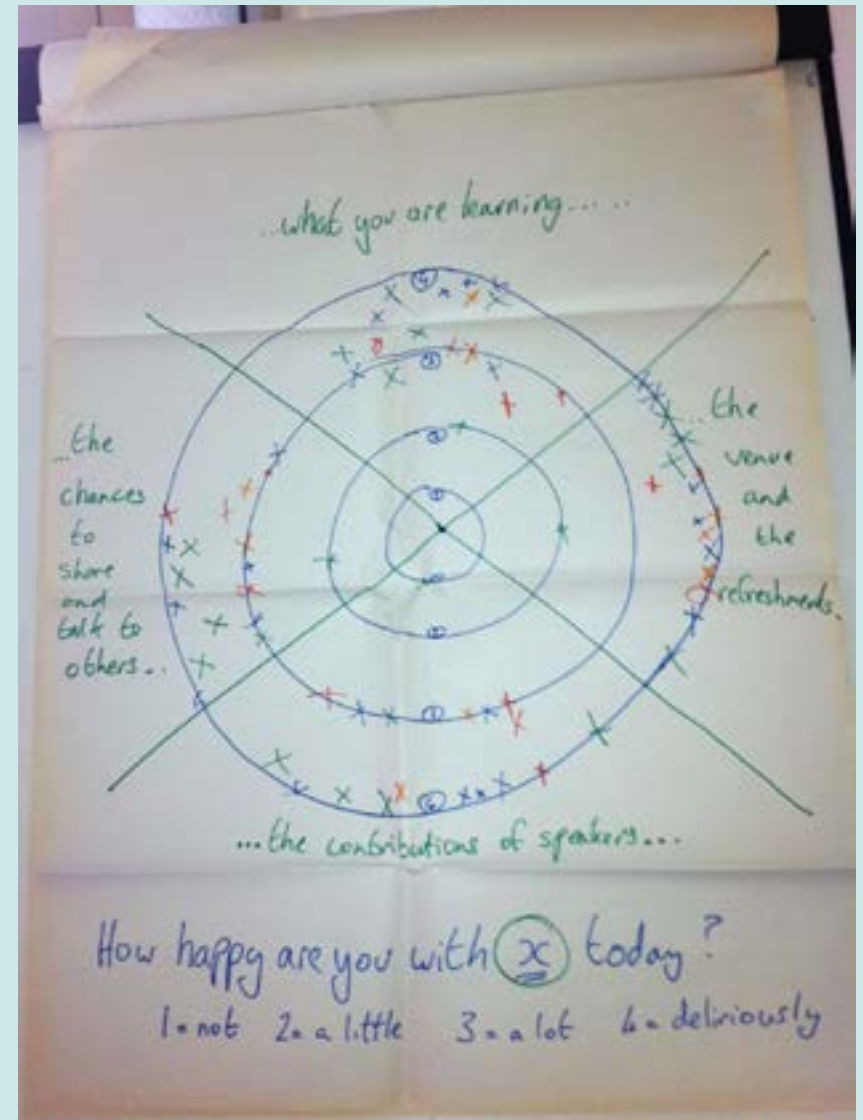 ...what you are learning.....
④
③
②
①
①
②
③
④
...the
chances
to
share
and
talk to
others...
...the
venue
and
the
refreshments.
...the contributions of speakers...
How happy are you with x today?
1 = not 2 = a little 3 = a lot 4 = deliriously